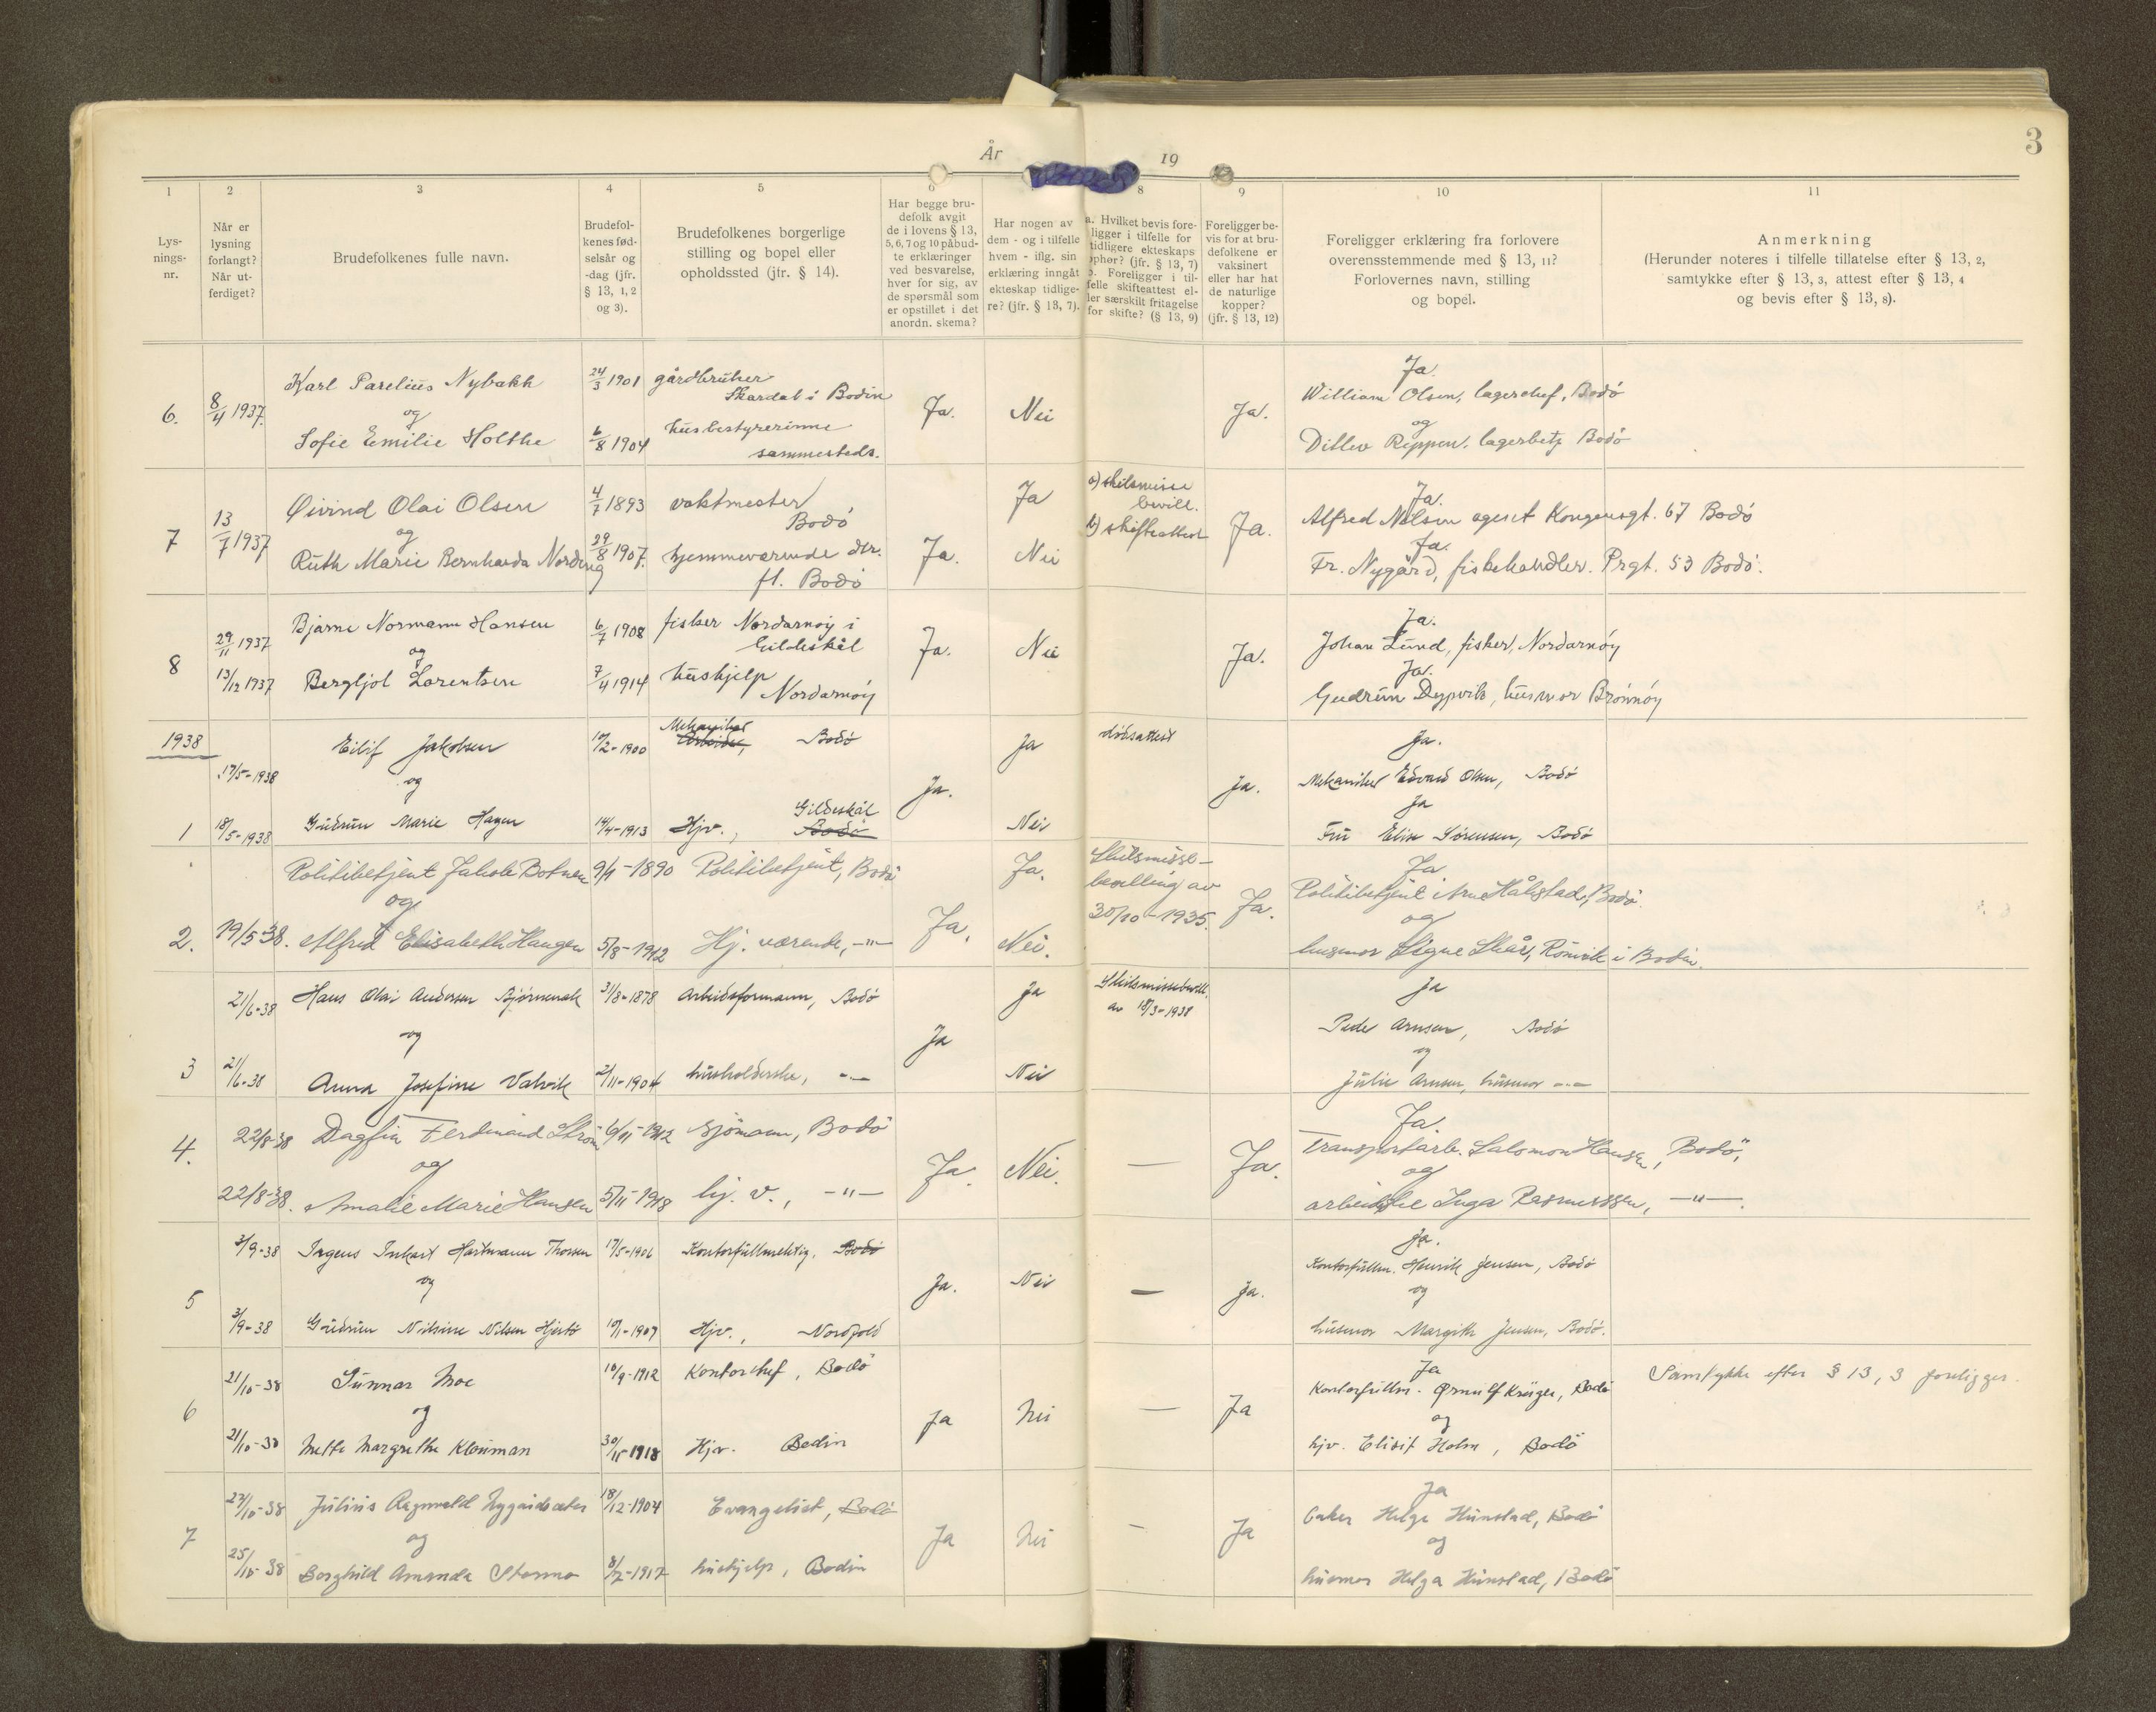 År 19
3
1
Lys-
nings-
nr.
2
Når er
lysning
forlangt?
Når ut-
ferdiget?
3
Brudefolkenes fulle navn.
4
Brudefol-
kenes fød-
selsår og
-dag (jfr.
§ 13, 1, 2
og 3).
5
Brudefolkenes borgerlige
stilling og bopel eller
opholdssted (jfr. § 14).
6
Har begge bru-
defolk avgit
de i lovens § 13,
5, 6, 7 og 10 påbud-
te erklæringer
ved besvarelse,
hver for sig, av
de spørsmål som
er opstillet i det
anordn. skema?
Har nogen av
dem - og i tilfelle
hvem - iflg. sin
erklæring inngått
ekteskap tidlige-
re? (jfr. § 13, 7).
8
a. Hvilket bevis fore-
ligger i tilfelle for
tidligere ekteskaps
ophør? (jfr. § 13, 7)
b. Foreligger i til-
felle skifteattest el-
ler særskilt fritagelse
for skifte? (§ 13, 9)
9
Foreligger be-
vis for at bru-
defolkene er
vaksinert
eller har hat
de naturlige
kopper?
(jfr. § 13, 12)
10
Foreligger erklæring fra forlovere
overensstemmende med § 13, 11?
Forlovernes navn, stilling
og bopel.
11
Anmerkning
(Herunder noteres i tilfelle tillatelse efter § 13, 2,
samtykke efter § 13, 3, attest efter § 13, 4
og bevis efter § 13, 8).
6. 8/4 1937. Karl Parelius Nybakk 24/3 1901 gårdbruker
Skardal i Bodin
og
Sofie Emilie Holthe 6/8 1904 husbestyrerinne
sammesteds.
Ja. Nei Ja.
Ja.
William Olsen, lagerchef, Bodö
og
Ditlev Reppen, lagerbetj Bodö
7 13/7 1937 Øivind Olai Olsen 4/7 1893 vaktmester
Bodö
og
Ruth Marie Bernharda Nording 29/8 1907. hjemmeværende dtr.
fl. Bodö
Ja. Ja Nei
a) skilsmisse
bevill.
b) skifteattest
Ja.
Ja.
Alfred Nilsen agent Kongensgt. 67 Bodö
Ja.
Fr. Nygård, fiskehandler. Prgt. 53 Bodö.
8 29/11 1937 13/12 1937 Bjarne Normann Hansen 6/7 1908 fisker Nordarnöy i
Gildeskål
og
Bergljot Larentsen 7/4 1914 hushjelp
Nordarnöy
Ja. Nei Ja.
Ja.
Johan Lund, fisker, Nordarnöy
Ja.
Gudrun Dypvik, husmor Brönnöy
1938
1 17/5-1938 18/5-1938 Eilif Jakobsen 10/2-1900 Mekaniker Arbeider, Bodö
og
Gudrun Marie Hagen 14/4-1913 Hjv., Gildeskål Bodö
Ja. Ja Nei dödsattest Ja.
Ja.
Mekaniker Edvard Olsen, Bodö
Ja
Fru Elise Sörensen, Bodö
2. 19/5 38. Politibetjent Jakob Botnen 9/4-1890 Politibetjent, Bodö
og
Alfred Elisabeth Haugen 5/8-1912 Hj. værende, -"-
Ja. Ja. Nei.
Skilsmisse-
bevilling av
30/10-1935.
Ja.
Ja
Politibetjent Arne Håkstad, Bodö.
og
husmor Signe Skår, Rönvik i Bodin.
3 21/6-38 21/6-38 Hans Olai Andersen Björnenak 31/8-1878 Arbeidsformann, Bodö
og
Anna Josefine Valvik 2/11-1904 husholderske, -"-
Ja Ja Nei
Skilsmissebevill.
av 18/3-1938
Ja
Peder Arnsen, Bodö
og
Julie Arnsen, husmor -"-
4. 22/8-38 22/8-38. Dagfin Ferdinand Ström 6/11-1912 Sjömann, Bodö
og
Amalie Marie Hansen 5/11-1918 hj. v., -"-
Ja. Nei. — Ja.
Ja.
Transportarb. Salomon Hansen, Bodö,
og
arbeiderske Inga Rasmussen, -"-.
5 3/9-38 3/9-38 Jrgens Inkart Hartmann Thorsen 17/5-1906 Kontorfullmektig, Bodö
og
Gudrun Nilsine Nilsen Hjertö 10/1-1907 Hjv., Nordfold
Ja. Nei — Ja.
Ja.
Kontorfullm. Henrik Jensen, Bodö
og
husmor Margith Jensen, Bodö.
6 21/10-38 21/10-38 Gunnar Moe 10/9-1912 Kontorchef, Bodö
og
Mette Margrethe Klouman 30/11-1918 Hjv. Bodin
Ja Nei — Ja
Ja
Kontorfullm. Ørnulf Krüger, Bodö
og
hjv. Elisif Holm, Bodö
Samtykke efter § 13, 3 foreligger.
7 22/10-38 25/10-38 Julius Ragnvald Nygaardsæter 18/12-1904 Evangelist, Bodö
og
Borghild Amanda Stormo 8/2-1917 hushjelp, Bodin
Ja Nei - Ja
Ja
Baker Helge Hunstad, Bodö
og
husmor Helga Hunstad, Bodö